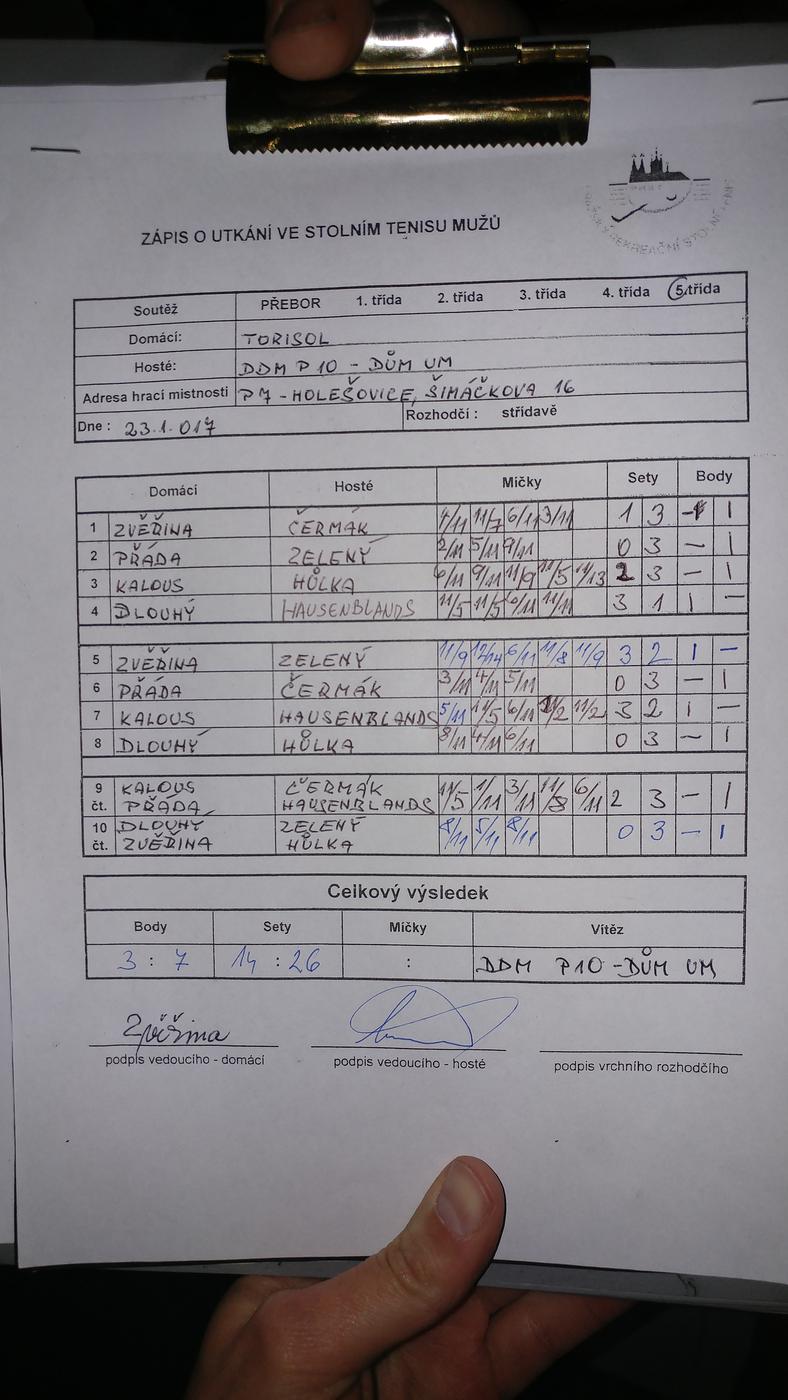 ZÁPIS O UTKÁNÍ VE STOLNÍM TENISU MUŽŮ
Soutěž PŘEBOR 1. třída 2. třída 3. třída 4. třída 5. třída
Domácí: TORISOL
Hosté: DDM P10 - DŮM UM
Adresa hrací mistnosti P7 - HOLEŠOVICE, ŠIMÁČKOVA 16
Dne : 23.1.017 Rozhodčí : střídavě
Domácí Hosté Míčky Sety Body
1 ZVĚŘINA ČERMÁK 4/11 11/7 6/11 3/11 1 3 - 1
2 PŘÁDA ZELENÝ 2/11 5/11 9/11 0 3 - 1
3 KALOUS HŮLKA 6/11 9/11 11/9 11/5 11/13 2 3 - 1
4 DLOUHÝ HAUSENBLANDS 11/5 11/5 11/11 3 1 1 -
5 ZVĚŘINA ZELENÝ 11/9 12/14 6/11 11/8 11/9 3 2 1 -
6 PŘÁDA ČERMÁK 3/11 4/11 5/11 0 3 - 1
7 KALOUS HAUSENBLANDS 5/11 11/5 6/11 11/2 11/2 3 2 1 -
8 DLOUHÝ HŮLKA 8/11 4/11 6/11 0 3 - 1
9 KALOUS ČERMÁK 11/5 1/11 3/11 11/8 6/11 2 3 - 1
čt. PŘÁDA HAUSENBLANDS
10 DLOUHÝ ZELENÝ 8/11 5/11 8/11 0 3 - 1
čt. ZVĚŘINA HŮLKA
Celkový výsledek
Body Sety Míčky Vítěz
3 : 7 14 : 26 : DDM P10 - DŮM UM
Zvěřina
podpis vedoucího - domácí podpis vedoucího - hosté podpis vrchního rozhodčího